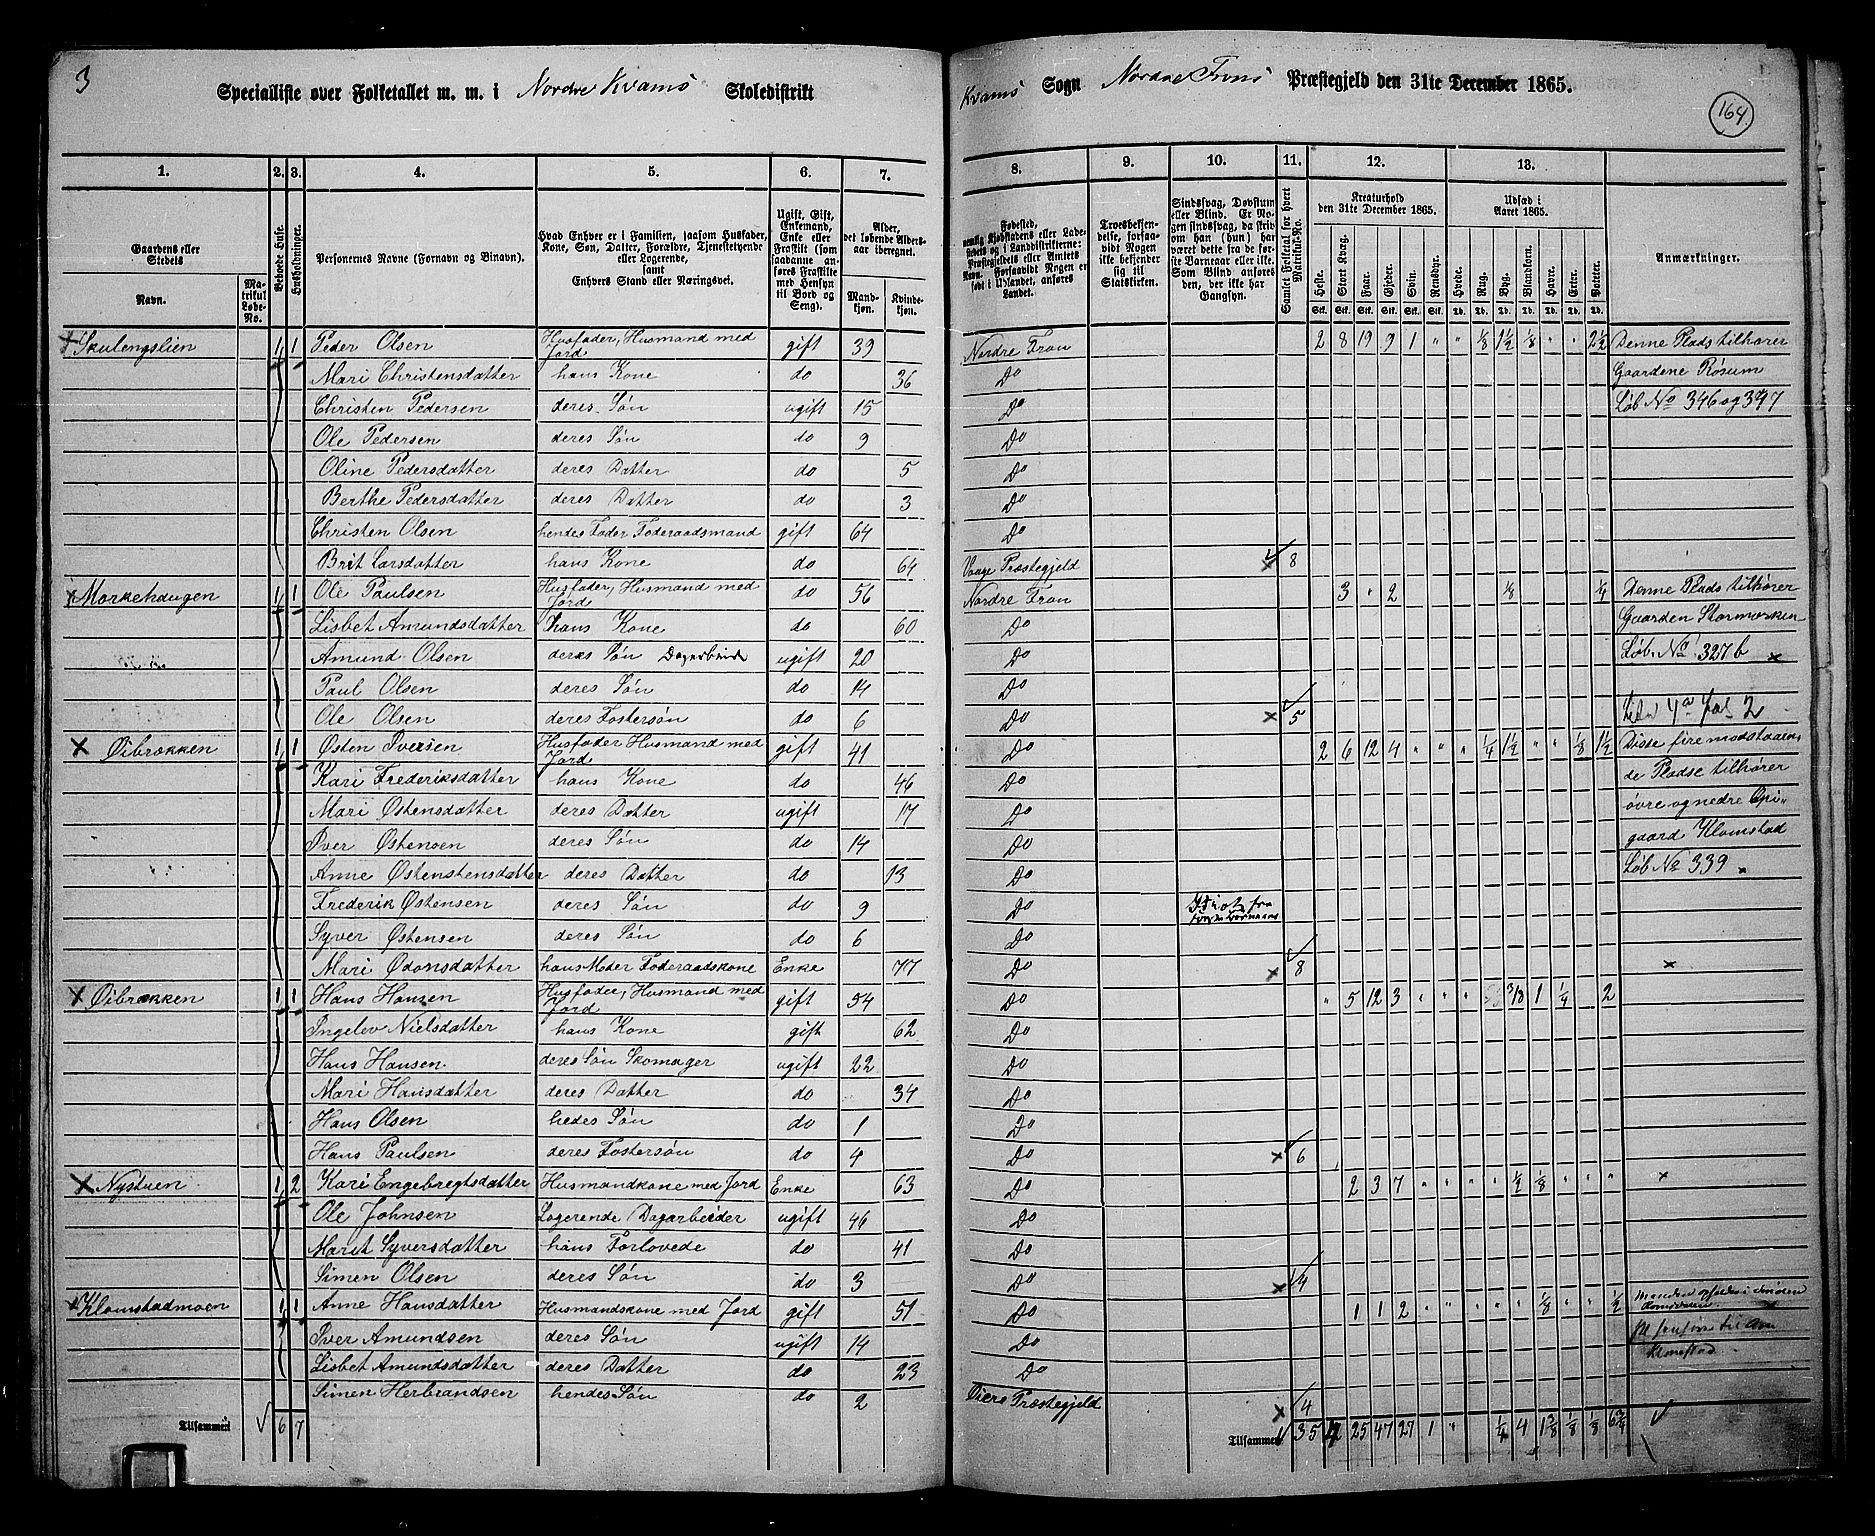 3
Specialliste over Folketallet m. m. i Nordre Kvams Skoledistrikt
Kvams Sogn Nordre Frons Præstegjeld den 31te December 1865.
164.
1. 2. 3. 4. 5. 6. 7. 8. 9. 10. 11. 12. 13.
Gaardens eller Stedets
Navn.
Matrikul Løbe-No.
Beboede Huse.
Husholdninger.
Personernes Navne (Fornavn og Binavn).
Hvad Enhver er i Familien, saasom Husfader, Kone, Søn, Datter, Forældre, Tjenestetyende eller Logerende,
samt
Enhvers Stand eller Næringsvei.
Ugift, Gift, Enkemand, Enke eller Fraskilt (som saadanne anføres Fraskilte med Hensyn til Bord og Seng).
Alder, det løbende Alders-aar iberegnet.
Mandkjøn.
Kvindekjøn.
Fødested,
Troesbekjendelse, forsaavidt Nogen ikke bekjender sig til Statskirken.
Sindssvag, Døvstum eller Blind. Er Nogen sindssvag, da skrives om han (hun) har været dette fra de første Barneaar eller ikke. Som Blind anføres den, der ikke har Gangsyn.
Samlet Folketal for hvert Matrikul-No.
Kreaturhold den 31te December 1865.
Heste. Stort Kvæg. Faar. Gjeder. Svin. Rensdyr.
Udsæd i Aaret 1865.
Hvede. Rug. Byg. Blandkorn. Havre. Erter. Poteter.
Anmærkninger.
Stk. Stk. Stk. Stk. Stk. Stk. Td. Td. Td. Td. Td. Td. Td.
Skulengslien 1 1 Peder Olsen Husfader, Husmand med Jord gift 39 Nordre Fron 2 8 19 9 1 " " 1/8 1 1/2 1/8 " " 2 1/2 Denne Plads tilhører
Mari Christensdatter hans Kone do 36 Do Gaardene Røsum
Christen Pedersen deres Søn ugift 15 Do Løb No 346 og 347
Ole Pedersen deres Søn do 9 Do
Oline Pedersdatter deres Datter do 5 Do
Berthe Pedersdatter deres Datter do 3 Do
Christen Olsen hendes Fader Føderaadsmand gift 64 Do
Brit Larsdatter hans Kone do 64 Vaage Præstegjeld 8
Morkehaugen 1 1 Ole Paulsen Husfader, Husmand med Jord do 56 Nordre Fron 3 " 2 1/8 1/4 Denne Plads tilhører
Lisbet Amundsdatter hans Kone do 60 Do Gaarden Stormorken
Amund Olsen deres Søn ugift 20 Do Løb. No 327 b
Paul Olsen deres Søn do 14 Do
Ole Olsen deres Fostersøn do 6 Do 5
Øibrækken 1 1 Østen Iversen Husfader Husmand med Jord gift 41 Do 2 6 12 4 " " " 1/4 1 1/2 " " 1/8 1 1/2 Disse fire modstaaen-
Kari Frederiksdatter hans Kone do 46 Do de Pladse tilhører
Mari Østensdatter deres Datter ugift 17 Do øvre og nedre Opi-
Iver Østensen deres Søn do 14 Do gaard Klomstad
Anne Østenstensdatter deres Datter do 13 Do Løb No 339
Frederik Østensen deres Søn do 9 Do Idiot fra
Syver Østensen deres Søn do 6 Do
Mari Odonsdatter hans Moder Føderaadskone Enke 77 Do 8
Øibrækken 1 1 Hans Hansen Husfader, Husmand med Jord gift 54 Do " 5 12 3 " " " 3/8 1 1/4 " 2
Ingelev Nielsdatter hans Kone gift 62 Do
Hans Hansen deres Søn Skomager ugift 22 Do
Mari Hansdatter deres Datter do 34 Do
Hans Olsen hedes Søn do 1 Do
Hans Paulsen deres Fostersøn do 4 Do 6
Nystuen 1 2 Kari Engebregtsdatter Husmandkone med Jord Enke 63 Do 2 3 7 " " " " 1/2 1/8 " " "
Ole Johnsen Logerende Dagarbeider ugift 46 Do
Marit Syversdatter hans Forlovede do 41 Do
Simen Olsen deres Søn do 3 Do 4
Klomstadmoen 1 1 Anne Hansdatter Husmandskone med Jord gift 51 Do 1 1 2 " " " " " 1/8 " " 1/2
Iver Amundsen deres Søn ugift 14 Do
Lisbet Amundsdatter deres Datter do 23 Do
Simen Herbrandsen hendes Søn do 2 Øiers Præstegjeld 4
Tilsammen 6 7
Tilsammen 35 4 25 47 27 1 " 1/4 4 1 3/8 1/8 1/8 6 3/4